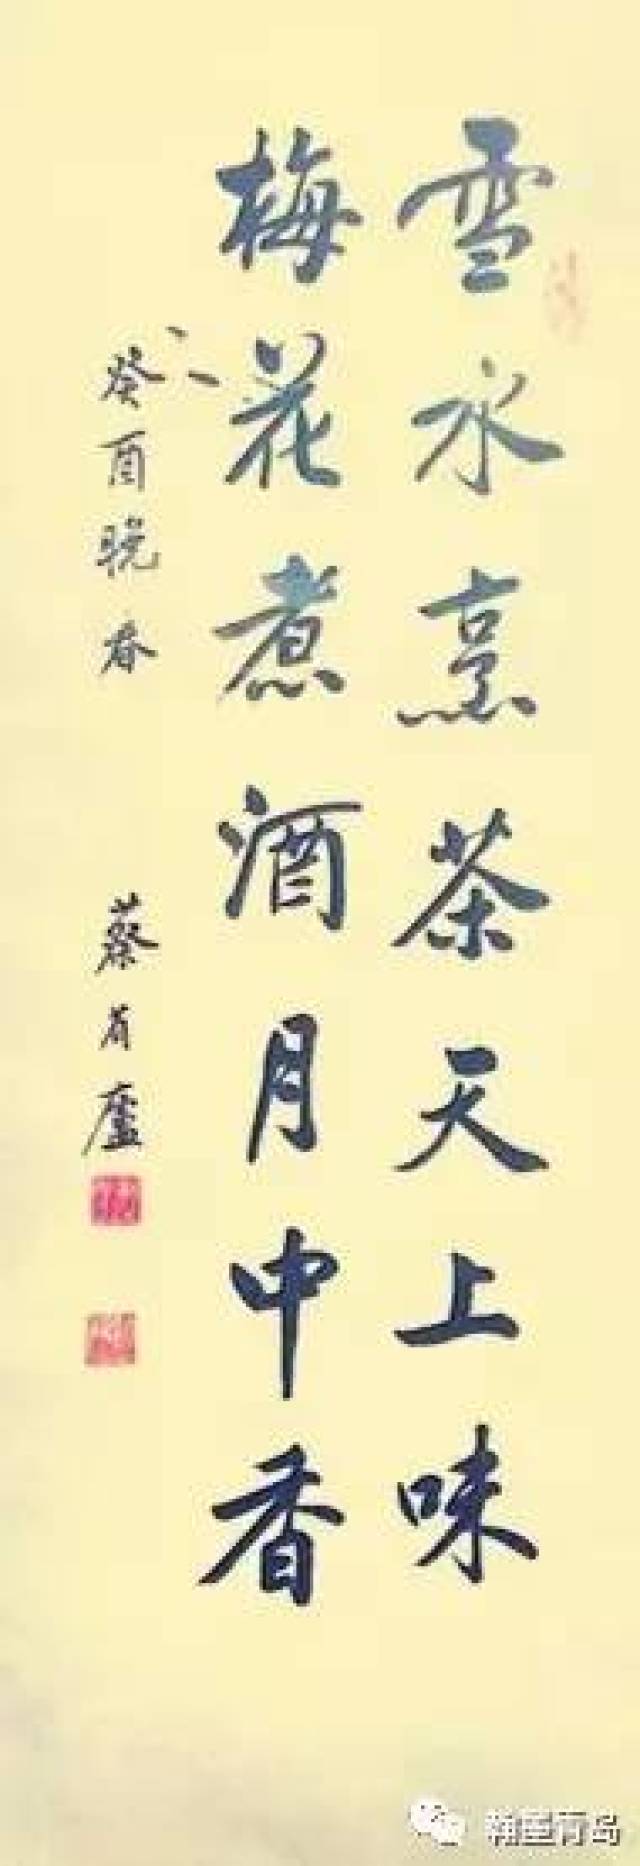 雪水烹茶天上味
梅花煮酒月中香
癸酉晚春
蔡省廬
翰墨青岛